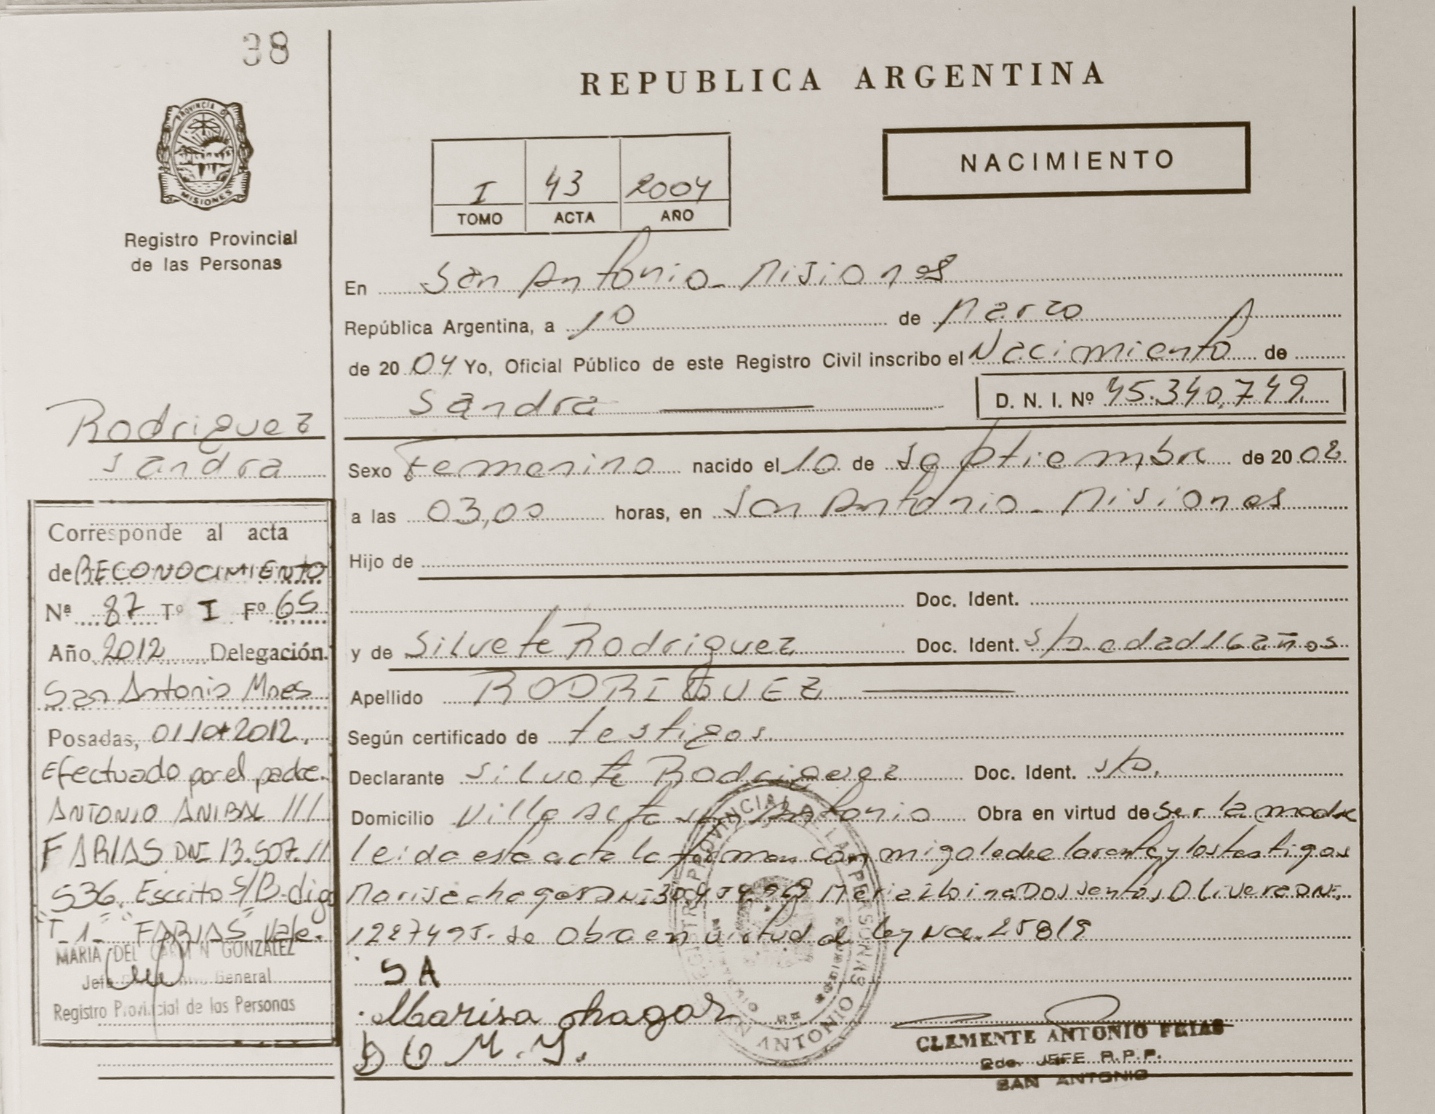 38
REPUBLICA ARGENTINA
PROVINCIA DE
MISIONES
Registro Provincial
de las Personas
I 43 2004
TOMO ACTA AÑO
NACIMIENTO
En San Antonio - Misiones
República Argentina, a 10 de Marzo
de 2004 Yo, Oficial Público de este Registro Civil inscribo el Nacimiento de
Sandra D. N. I. Nº 45.340.749
Rodriguez
Sandra
Sexo Femenino nacido el 10 de Septiembre de 2002
a las 03,00 horas, en San Antonio - Misiones
Hijo de
Doc. Ident.
y de Silvete Rodriguez Doc. Ident. s/D. edad 16 años
Apellido RODRIGUEZ
Según certificado de testigos
Declarante Silvete Rodriguez Doc. Ident. s/D.
Domicilio Villa Alta San Antonio Obra en virtud de Ser la madre
leida esta acta la firman conmigo la declarante y los testigos
Marisa chagas DNI: Maria Dos Santos Olivera DNI.
1227495. se Obra en virtud de ley No. 25819
SA
Marisa chagas
D O M. S.
CLEMENTE ANTONIO FRIAS
2do. JEFE R.P.P.
SAN ANTONIO
REGISTRO PROVINCIAL DE LAS PERSONAS
SAN ANTONIO
Corresponde al acta
de RECONOCIMIENTO
Nº 87 Tº I Fº 65
Año 2012 Delegación
San Antonio Mnes
Posadas, 01/Oct/2012.
Efectuado por el padre
ANTONIO ANIBAL ///
FARIAS DNI 13.507.//
536. Escrito S/B-digo
"T-1" "FARIAS" Vale.
MARIA DEL CARMEN GONZALEZ
Jefe General
Registro Provincial de las Personas